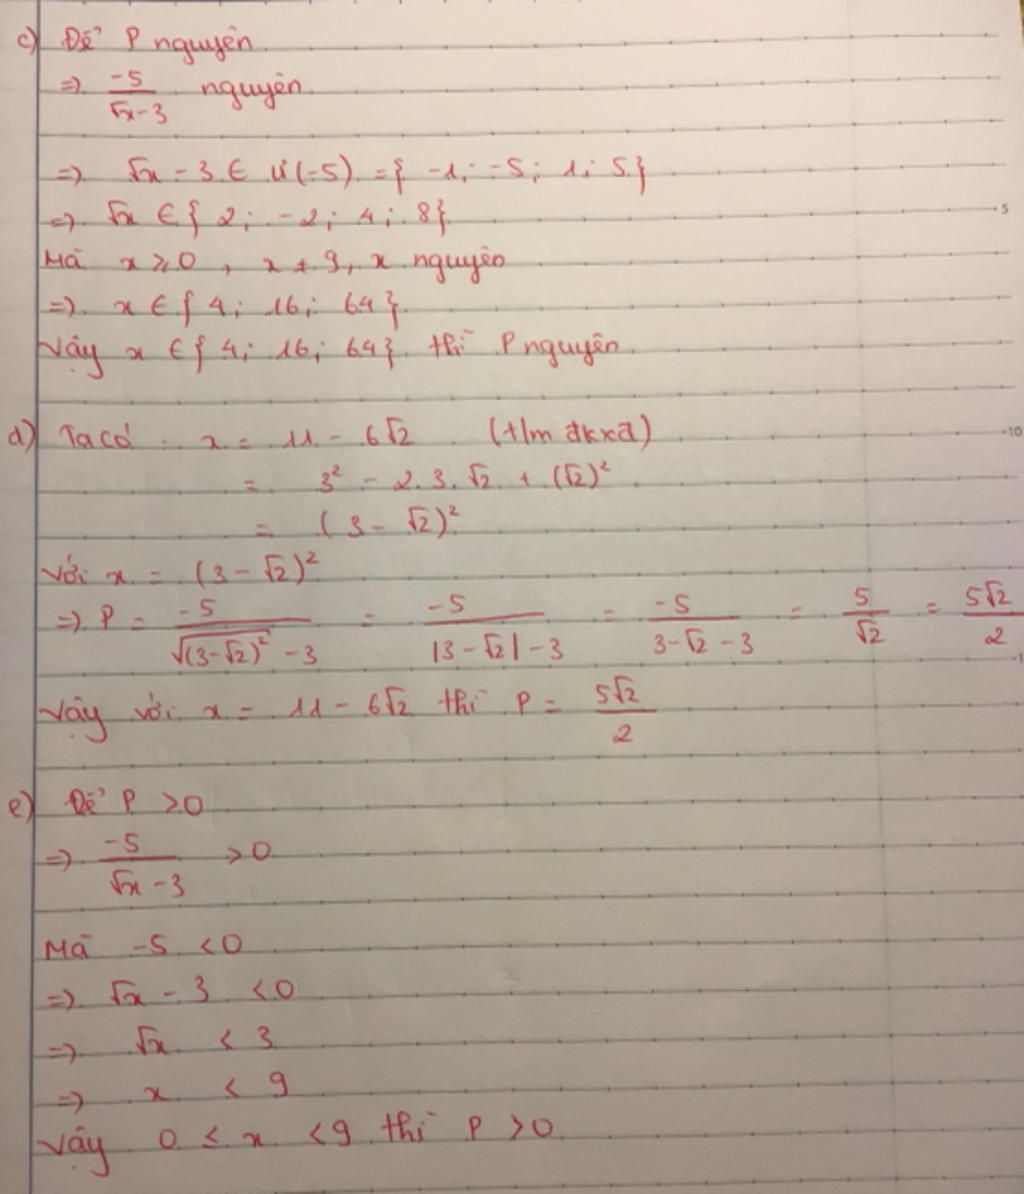 c) Để P nguyên
=> -5/(√x - 3) nguyên
=> √x - 3 ∈ Ư(-5) = { -1; -5; 1; 5 }
=> √x ∈ { 2; -2; 4; 8 }
5
Mà x ≥ 0, x ≠ 9, x nguyên
=> x ∈ { 4; 16; 64 }
Vậy x ∈ { 4; 16; 64 } thì P nguyên
d) Ta có: x = 11 - 6√2 (t/m đkxđ)
10
= 3² - 2.3.√2 + (√2)²
= (3 - √2)²
Với x = (3 - √2)²
=> P = -5/(√(3-√2)² - 3) = -5/(|3 - √2| - 3) = -5/(3 - √2 - 3) = 5/√2 = 5√2/2
Vậy với x = 11 - 6√2 thì P = 5√2/2
e) Để P > 0
=> -5/(√x - 3) > 0
Mà -5 < 0
=> √x - 3 < 0
=> √x < 3
=> x < 9
Vậy 0 ≤ x < 9 thì P > 0